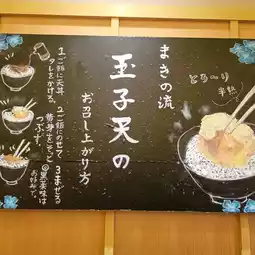 とろ〜り
半熟
まきの流
玉子天の
お召し上がり方
1ご飯に天丼
タレをかける。
2ご飯にのせて
黄身をそっと
つぶす。
3まぜる
お好みで。